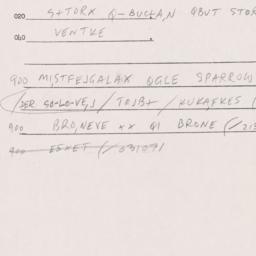 020 S+TORX Q-BUCHAN QBUT STOR
060 VENTKE
900 MISTFEJGALAX QGLE SPARROW
/DER SO-LO-VEJ / TOJB+ / KUKAFKES (
900 BRO,NEVE xx QI BRONE (/213
900 ESKET (/031091